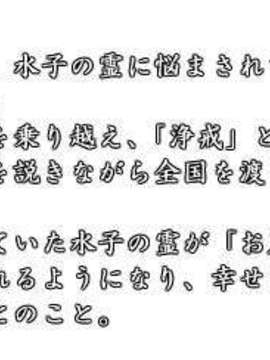 水子の霊に悩まされ
を乗り越え、「浄戒」と
を説きながら全国を渡
ていた水子の霊が『お
れるようになり、幸せ
とのこと。